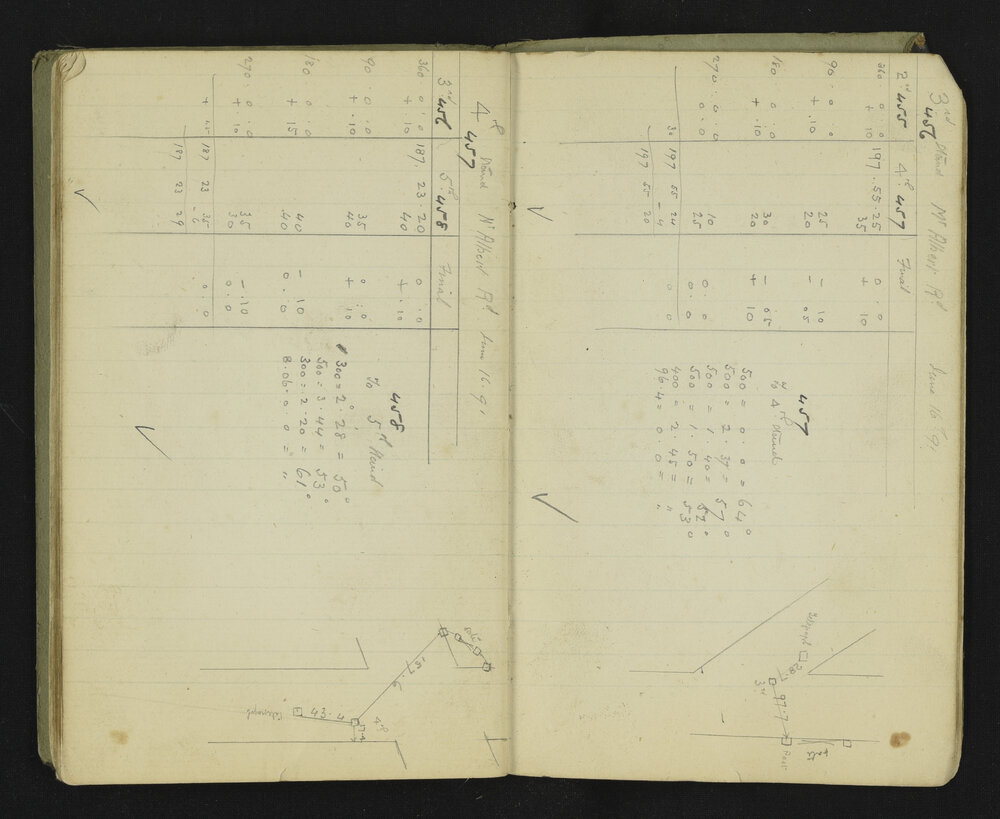 3rd Stand Mt Albert Rd June 16th 91
456
2nd 455 4th 457 Final
360 . 0 . 0 197 . 55 . 25 0 . 0
+ 10 35 + 10
90 . 0 . 0 25 - 10
+ 10 20 - 05
180 . 0 . 0 30 - 05
+ 10 20 + 10
270 . 0 . 0 10 0 . 0
0 . 0 25 0 . 0
30 197 55 24 0
- 4 0
197 55 20
457
to 4th Stand
500 = 0 . 0 = 64°
500 = 2 . 37 = 57 0
500 = 1 . 40 = 52 °
500 = 1 . 50 = 53 0
400 = 2 . 45 = "
96.4 = 0 0 = "
Telegraph
28.7
3rd
97.7
Post
4th Stand Mt Albert Rd June 16 . 91
457
3rd 456 5th 458 Final
360 . 0 . 0 187 . 23 . 20 0 . 0
+ 10 40 + . 10
90 . 0 . 0 35 0 . 0
+ . 10 40 + 10
180 0 . 0 40 - 10
+ 15 40 0 . 0
270 . 0 . 0 35 - . 10
+ 10 30 0 . 0
+ 45 187 23 35 0 . 0
- 6
187 23 29
458
To 5th Stand
300 = 2 . 28 = 50°
500 = 3 . 44 = 53 °
300 = 2 . 20 = 61 °
8.06 = 0 . 0 = "
157.6
4th
43.4
Telegraph